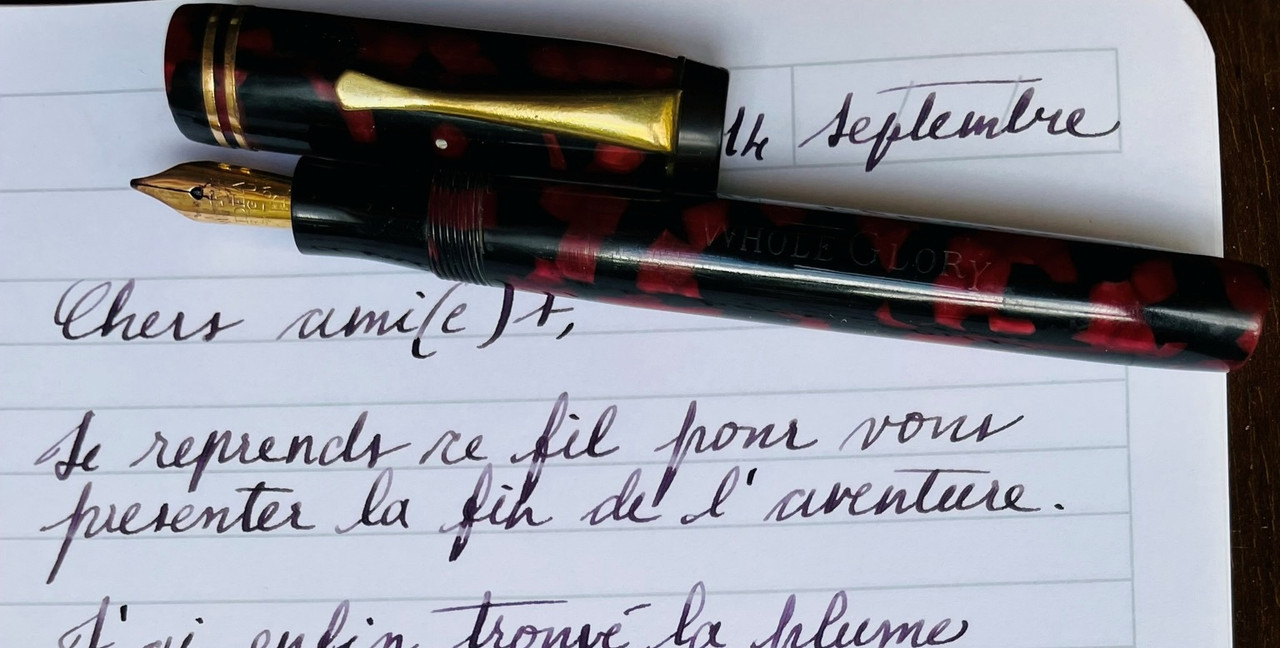 14 septembre
WHOLE GLORY
Chers ami(e)s,
Je reprends ce fil pour vous
presenter la fin de l'aventure.
J'ai enfin trouvé la plume